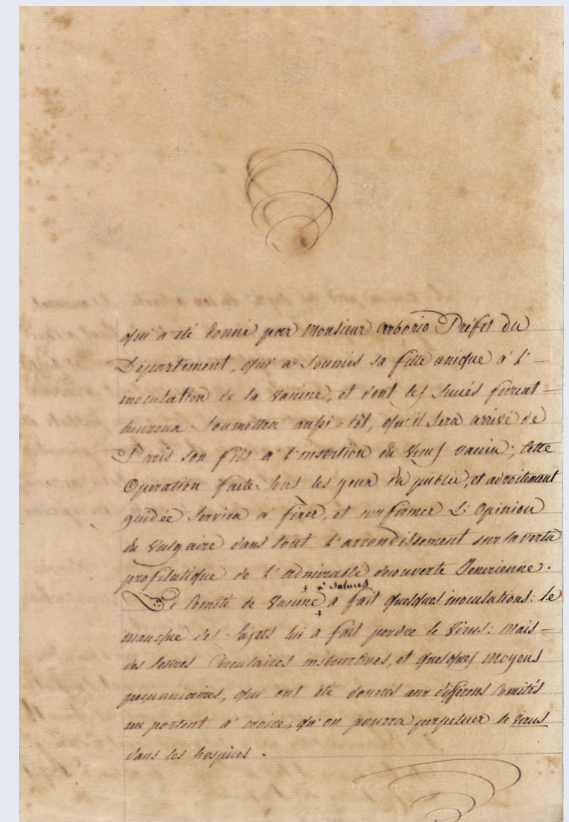 qui a été donné par Monsieur Arborio Préfet du
Département, qui a soumis sa fille unique à l'
inoculation de la vaccine, et dont les succés furent
heureux soumettra aussi-tôt, qu'il sera arrivé de
Paris son fils à l'insertion du virus vaccin; cette
Operation faite sous les yeux du public, et adroitement
guidée servira à fixer, et confirmer l'Opinion
du vulgaire dans tout l'arrondissement sur la vertu
profilatique de l'admirable découverte Jenerienne.
Le Comité de vaccine à Saluces a fait quelques inoculations: le
manque des sujets lui a fait perdre le virus: mais
des lettres circulaires instructives, et quelques moyens
pecuniaires, qui ont été donnés aux differens Comités
me portent à croire, qu'on pourra perpetuer le virus
dans les hospices.